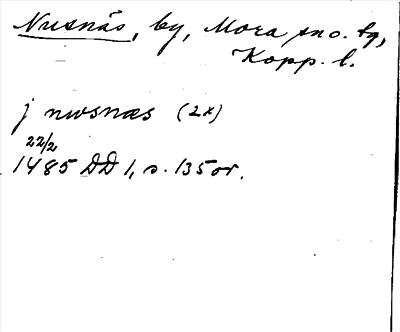 Nusnäs, by, Mora sn o. tg,
Kopp. l.
j nwsnæs (2x)
22/2
1485 DD 1, s. 135 or.